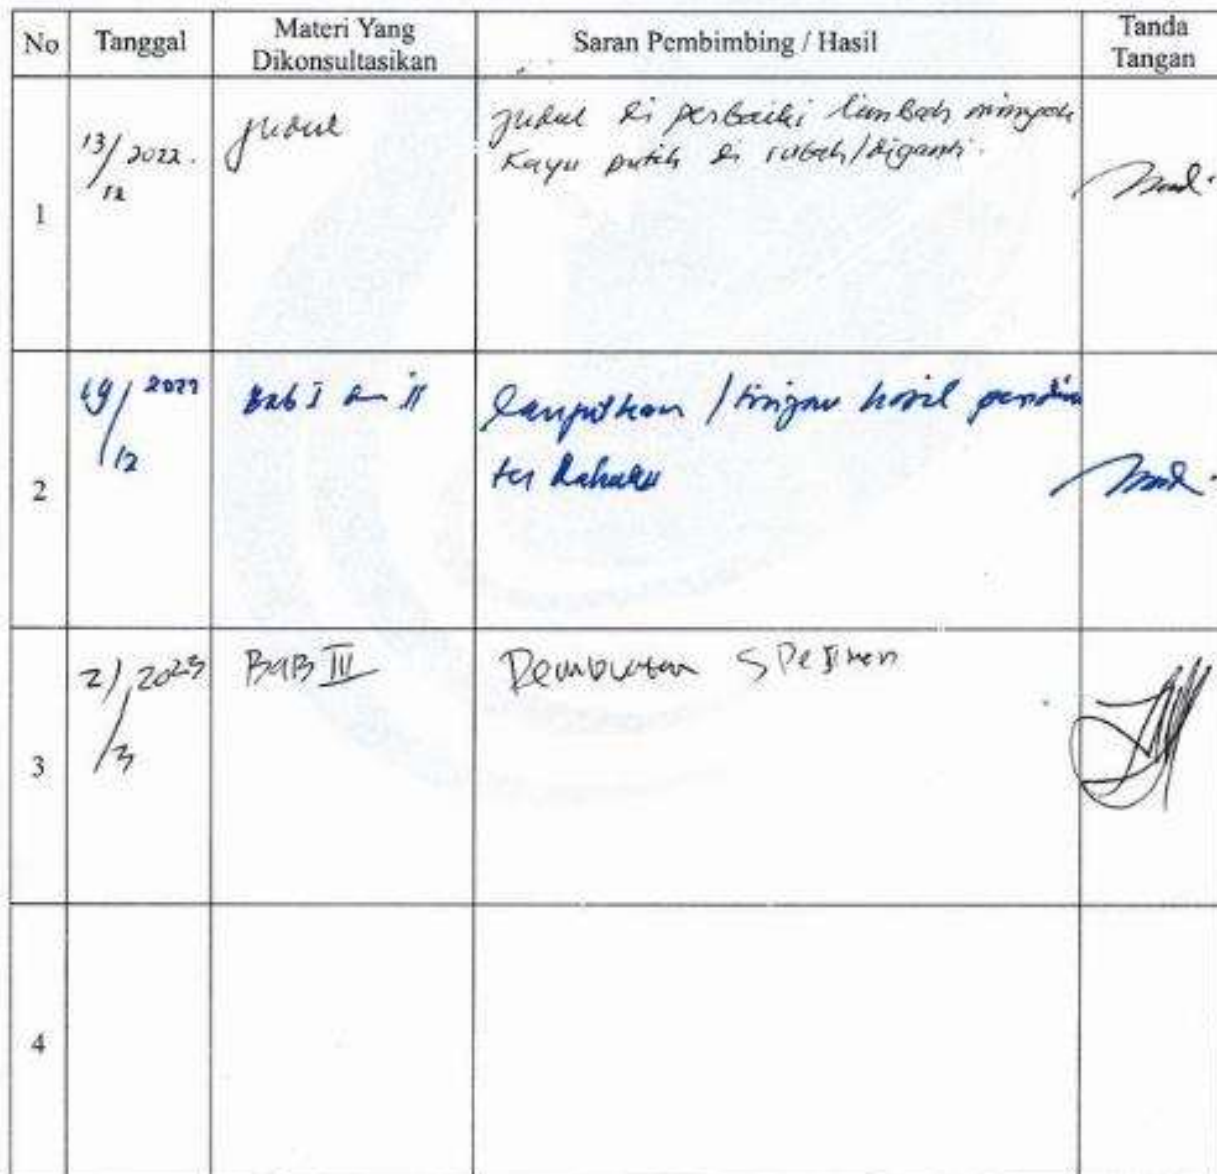 No Tanggal Materi Yang Dikonsultasikan Saran Pembimbing / Hasil Tanda Tangan
1 13/12 2022. judul judul di perbaiki limbah minyak
kayu putih di rubah/diganti.
2 19/12 2022 Bab I dan II lanjutkan / tinjau hasil
terdahulu
3 2/3 2023 BAB III Pembuatan Spesimen
4